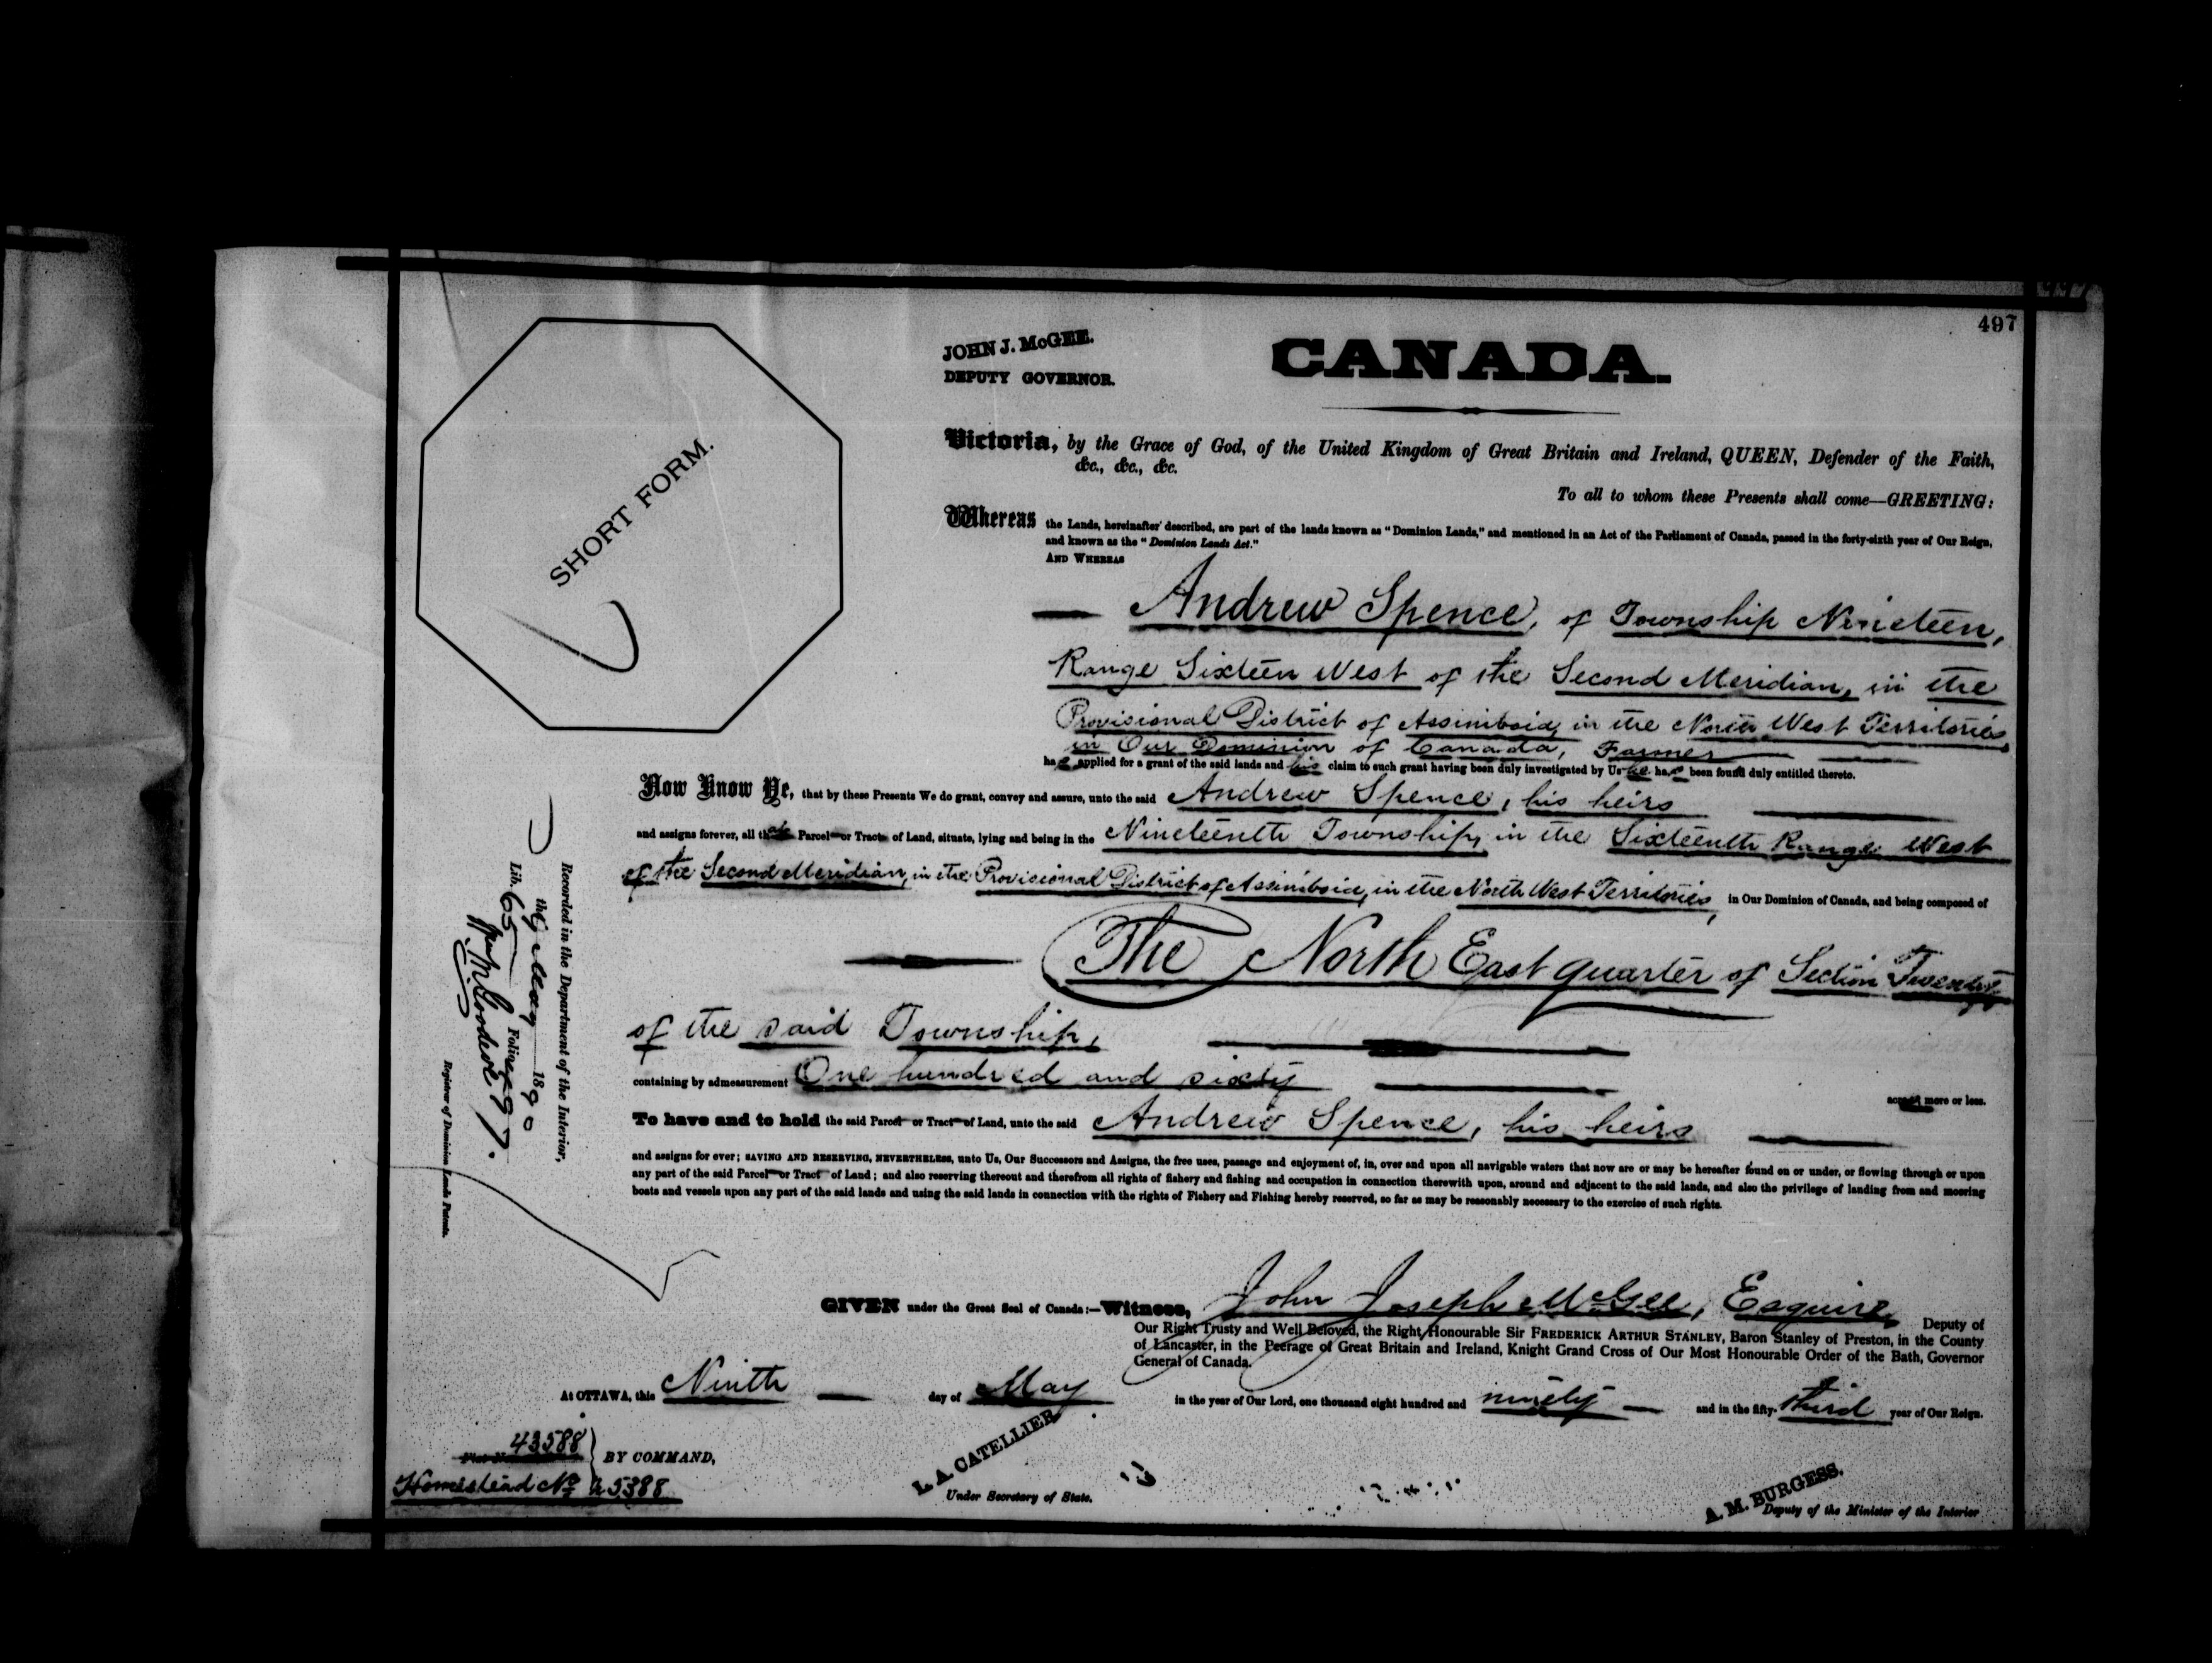 497
JOHN J. McGEE.
DEPUTY GOVERNOR.
CANADA.
SHORT FORM.
Victoria, by the Grace of God, of the United Kingdom of Great Britain and Ireland, QUEEN, Defender of the Faith,
&c., &c., &c.
To all to whom these Presents shall come—GREETING:
Whereas the Lands, hereinafter described, are part of the lands known as "Dominion Lands," and mentioned in an Act of the Parliament of Canada, passed in the forty-sixth year of Our Reign,
and known as the "Dominion Lands Act."
AND WHEREAS
Andrew Spence, of Township Nineteen,
Range Sixteen West of the Second Meridian, in the
Provisional District of Assiniboia, in the North West Territories
in Our Dominion of Canada, Farmer
has applied for a grant of the said lands and his claim to such grant having been duly investigated by Us he has been found duly entitled thereto.
Now Know Ye, that by these Presents We do grant, convey and assure, unto the said Andrew Spence, his heirs
and assigns forever, all that Parcel or Tract of Land, situate, lying and being in the Nineteenth Township, in the Sixteenth Range West
of the Second Meridian, in the Provisional District of Assiniboia, in the North West Territories, in Our Dominion of Canada, and being composed of
The North East quarter of Section Twenty
of the said Township,
containing by admeasurement One hundred and sixty
acres more or less.
To have and to hold the said Parcel or Tract of Land, unto the said Andrew Spence, his heirs
and assigns for ever; SAVING AND RESERVING, NEVERTHELESS, unto Us, Our Successors and Assigns, the free uses, passage and enjoyment of, in, over and upon all navigable waters that now are or may be hereafter found on or under, or flowing through or upon
any part of the said Parcel or Tract of Land; and also reserving thereout and therefrom all rights of fishery and fishing and occupation in connection therewith upon, around and adjacent to the said lands, and also the privilege of landing from and mooring
boats and vessels upon any part of the said lands and using the said lands in connection with the rights of Fishery and Fishing hereby reserved, so far as may be reasonably necessary to the exercise of such rights.
GIVEN under the Great Seal of Canada:—Witness, John Joseph McGee, Esquire, Deputy of
Our Right Trusty and Well Beloved, the Right Honourable Sir FREDERICK ARTHUR STANLEY, Baron Stanley of Preston, in the County
of Lancaster, in the Peerage of Great Britain and Ireland, Knight Grand Cross of Our Most Honourable Order of the Bath, Governor
General of Canada.
At OTTAWA, this Ninth day of May in the year of Our Lord, one thousand eight hundred and ninety and in the fifty-third year of Our Reign.
43588
BY COMMAND,
Homestead No 45388
L. A. CATELLIER
Under Secretary of State.
A. M. BURGESS.
Deputy of the Minister of the Interior
Recorded in the Department of the Interior,
the 9 May 1890
Lib. 65 Folio 497.
Registrar of Dominion Lands Patents.